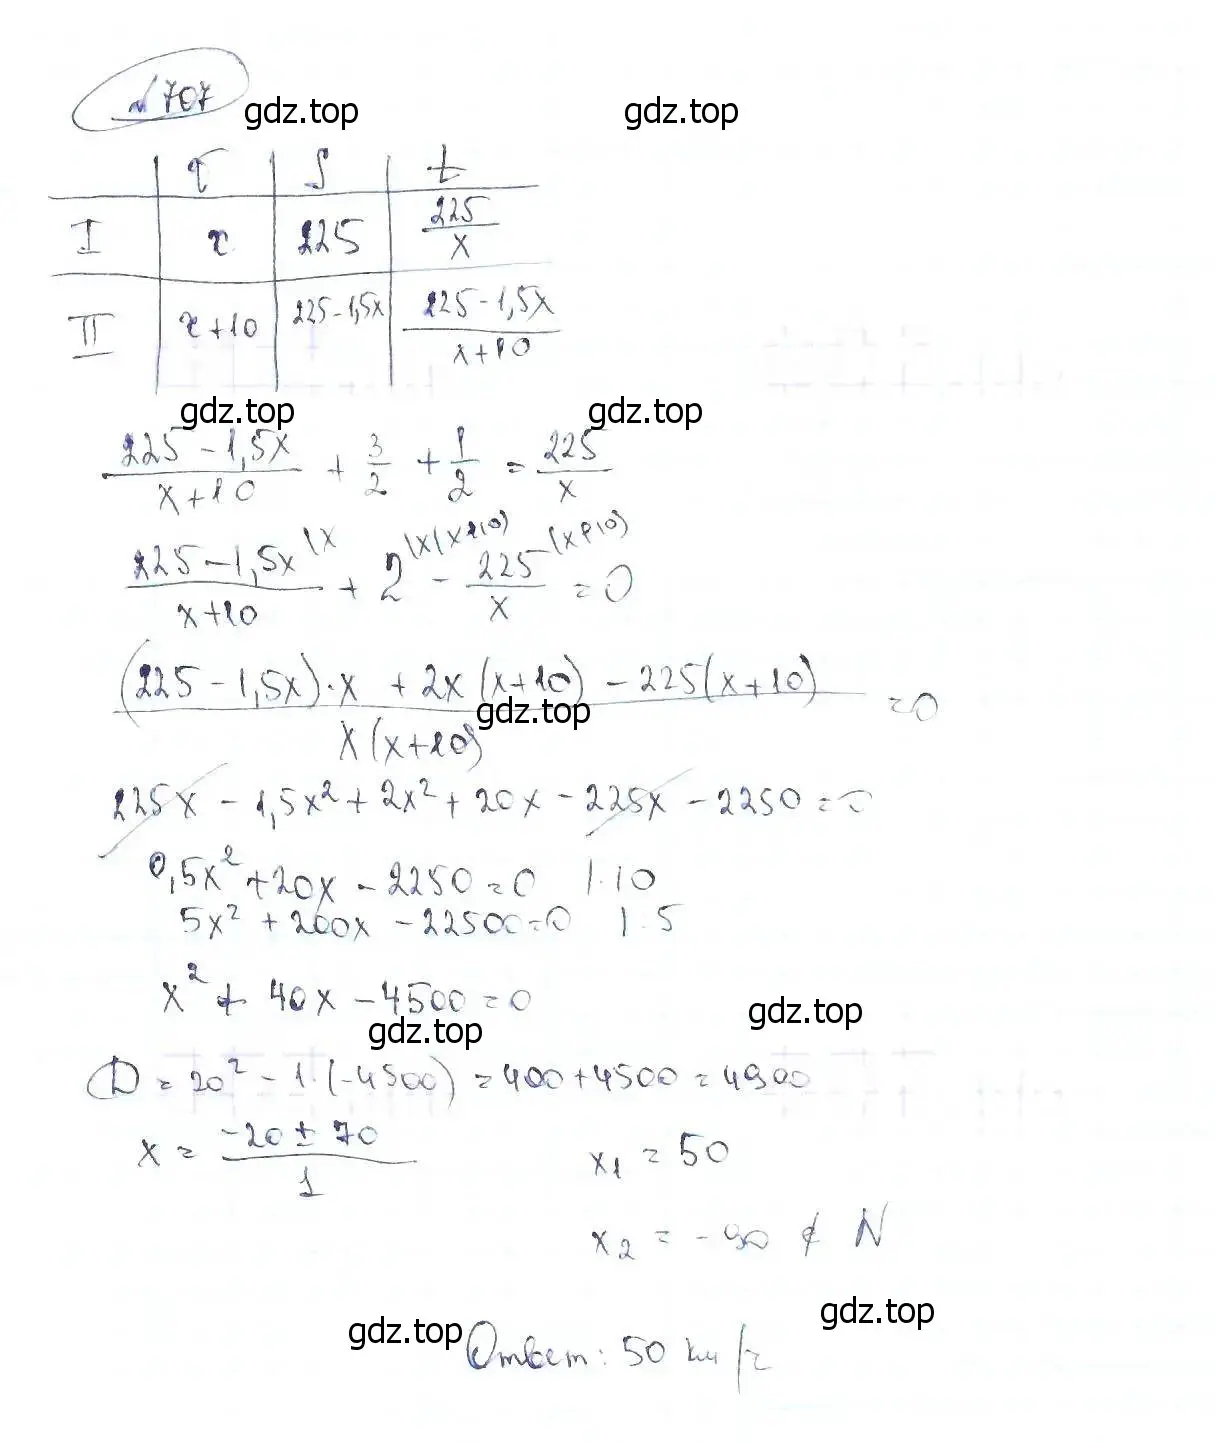 № 707
gdz.top gdz.top
v S t
I x 225 225/x
II x+10 225-1,5x (225-1,5x)/(x+10)
gdz.top gdz.top
(225-1,5x)/(x+10) + 3/2 + 1/2 = 225/x
(225-1,5x)/(x+10) \x + 2 \x(x+10) - 225/x \(x+10) = 0
((225-1,5x)·x + 2x(x+10) - 225(x+10))/(x(x+10)) = 0
gdz.top
225x - 1,5x² + 2x² + 20x - 225x - 2250 = 0
0,5x² + 20x - 2250 = 0 |·10
5x² + 200x - 22500 = 0 |:5
x² + 40x - 4500 = 0
gdz.top gdz.top
D = 20² - 1·(-4500) = 400 + 4500 = 4900
x = (-20 ± 70)/1 x₁ = 50
x₂ = -90 ∉ N
gdz.top gdz.top
Ответ: 50 км/ч